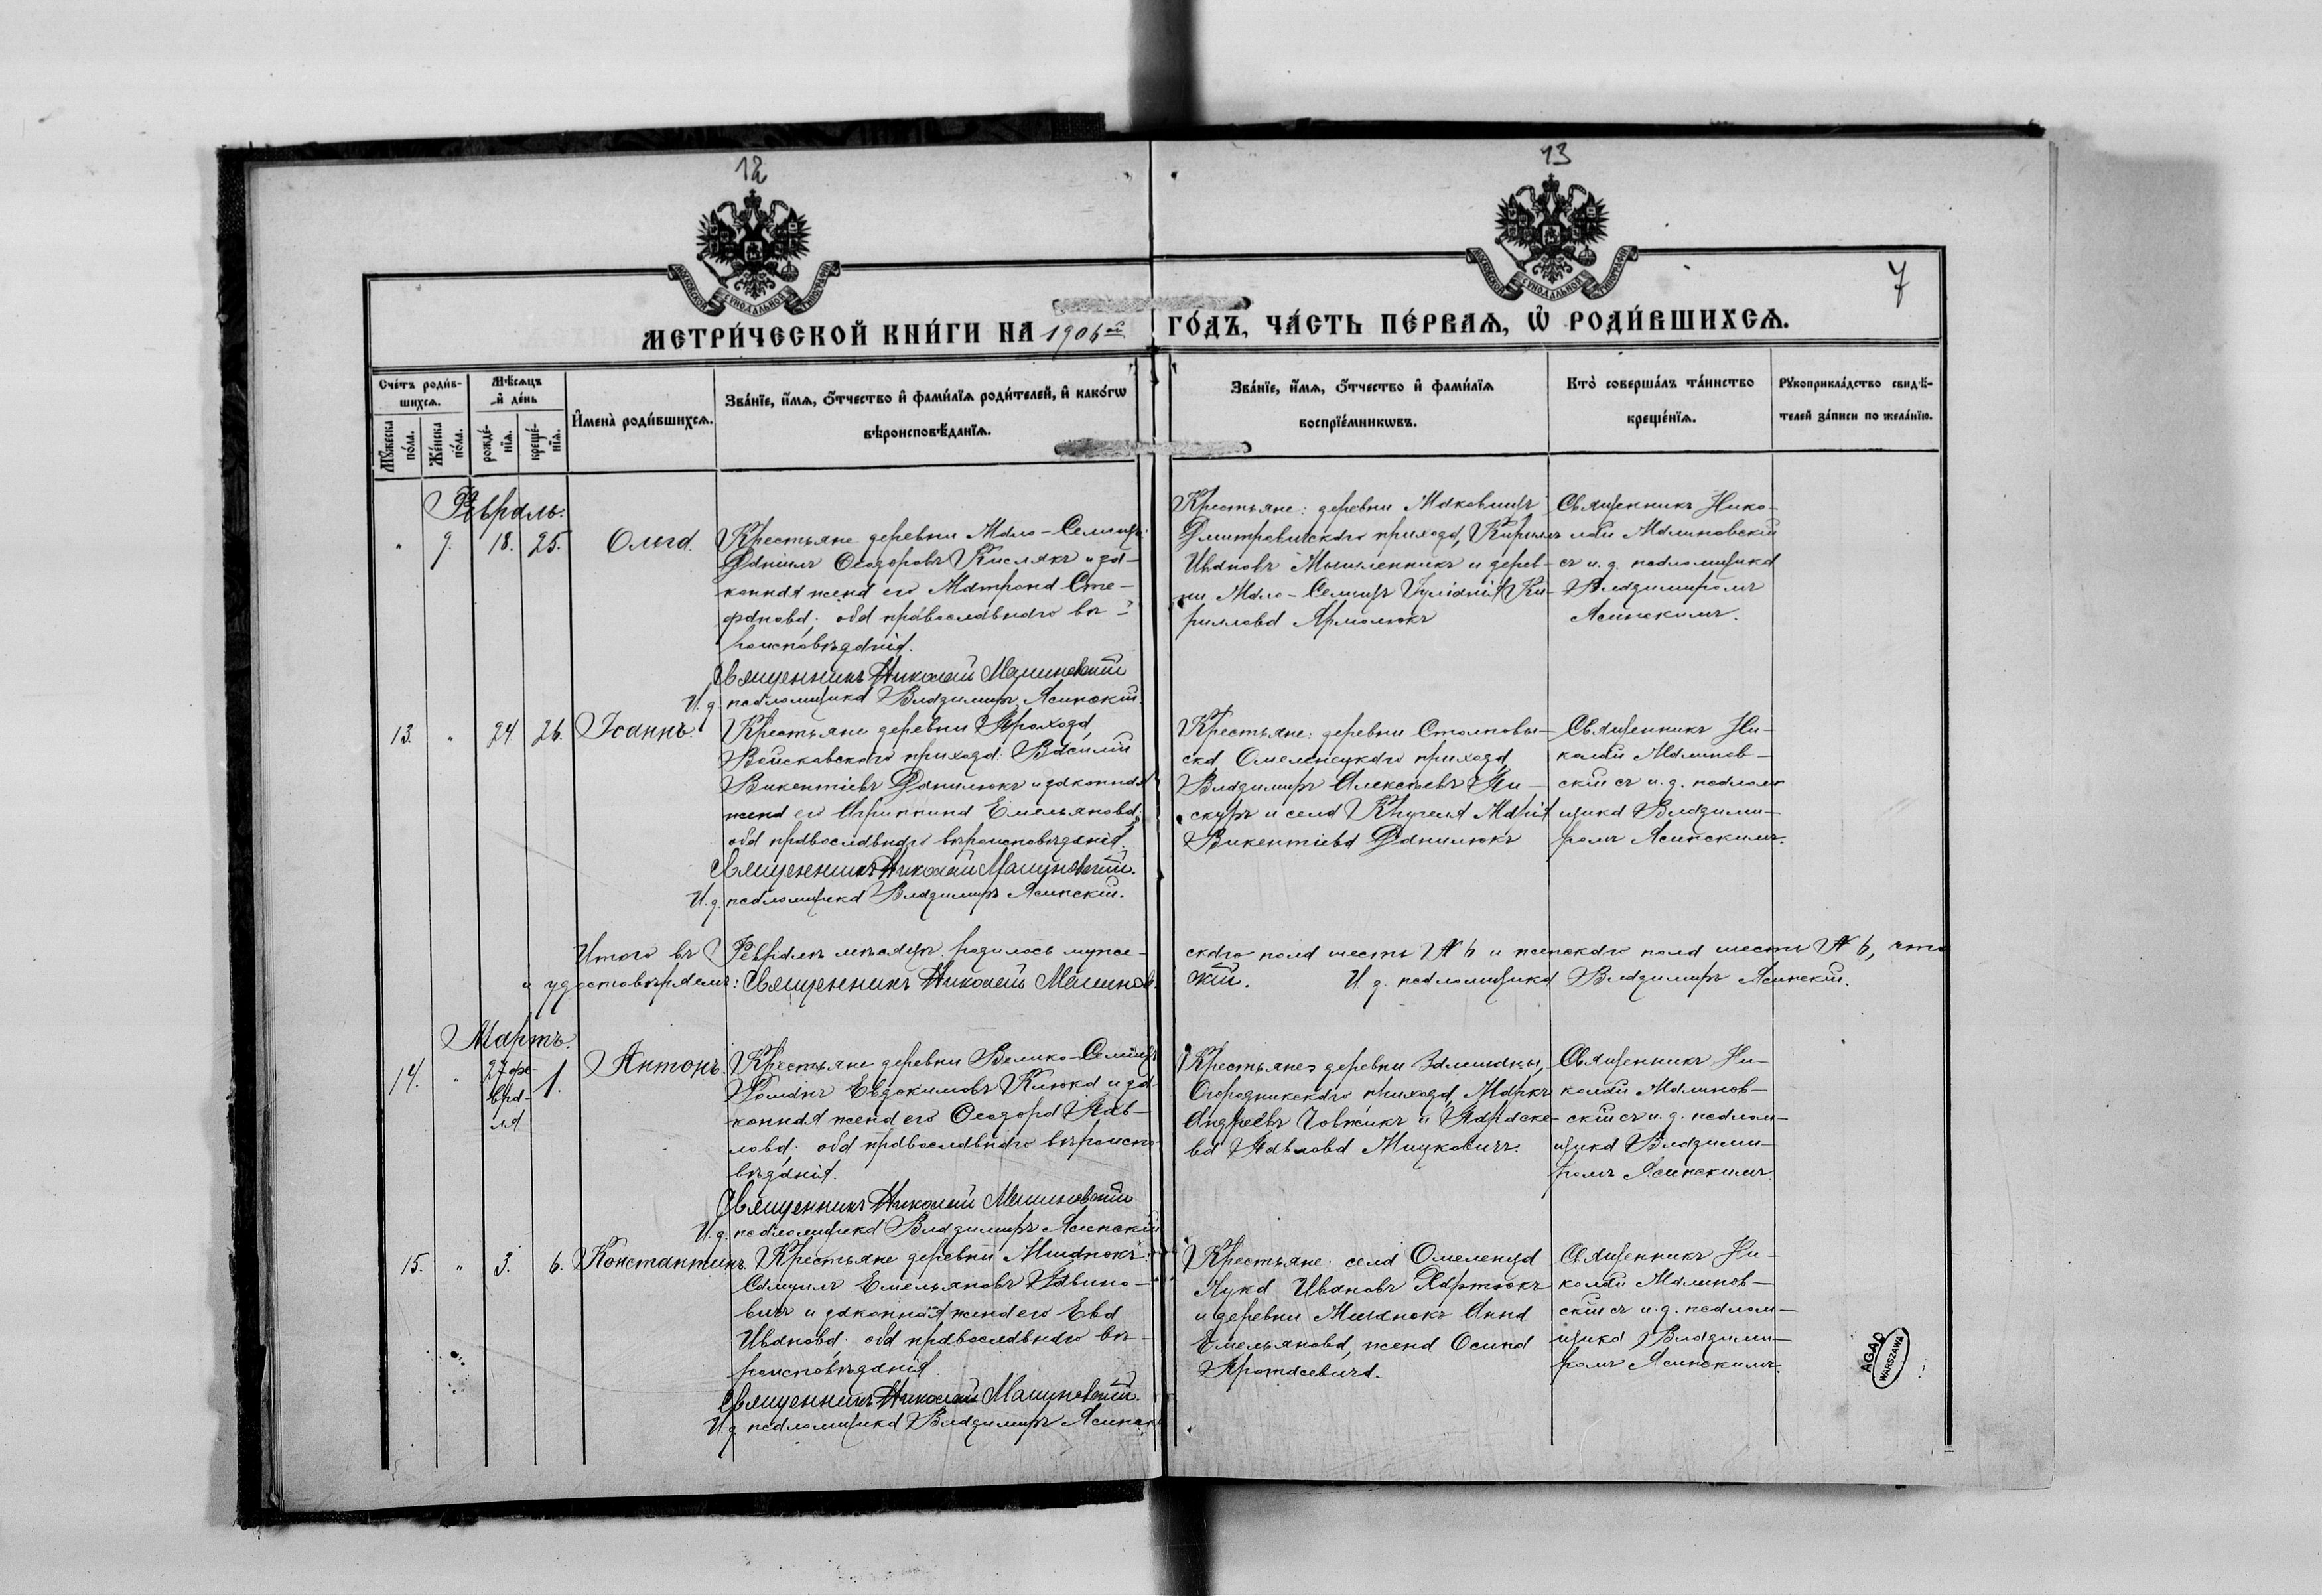 12
13
7
МОСКОВСКОЙ СѴНОДАЛЬНОЙ ТИПОГРАФІИ
МОСКОВСКОЙ СѴНОДАЛЬНОЙ ТИПОГРАФІИ
МЕТРИ́ЧЕСКОЙ КНИ́ГИ НА 1906 ой ГО́ДЪ, ЧА́СТЬ ПЕ́РВАѦ, Ѡ҆ РОДИ́ВШИХСѦ.
Сче́тъ роди́в-
шихсѧ.
Мѣ́сѧцъ
и҆ де́нь
Мꙋ́жеска по́ла.
Же́нска по́ла.
рожде́-
нїѧ.
креще́-
нїѧ.
И҆мена̀ роди́вшихсѧ.
Зва́нїе, и҆́мѧ, ѻ҆́тчество и҆ фами́лїѧ роди́телей, и҆ како́гѡ
вѣроисповѣ́данїѧ.
Зва́нїе, и҆́мѧ, ѻ҆́тчество и҆ фами́лїѧ
воспрїе́мникѡвъ.
Кто̀ соверша́лъ та́инство
креще́нїѧ.
Рꙋкоприкла́дство свидѣ́-
телей за́писи по жела́нїю.
Февраль.
" 9. 18. 25. Ольга.
Крестьяне деревни Мало-Селищъ:
Даніилъ Ѳеодоровъ Кислякъ и за-
конная жена его Матрона Сте-
фанова; оба православнаго вѣ-
роисповѣданія.
Священникъ Николай Малиновскій
И. д. псаломщика Владимиръ Ясинскій.
Крестьяне: деревни Маковищъ
Дмитровичскаго прихода, Кириллъ
Ивановъ Мышленникъ и дерев-
ни Мало-Селищъ Іуліанія Ки-
риллова Ярмолюкъ
Священникъ Нико-
лай Малиновскій
съ и. д. псаломщика
Владимиромъ
Ясинскимъ.
13. " 24. 26. Іоаннъ.
Крестьяне деревни Прохода,
Войсковскаго прихода: Василій
Викентіевъ Данилюкъ и законная
жена его Агриппина Емельянова;
оба православнаго вѣроисповѣданія.
Священникъ Николай Малиновскій.
И. д. псаломщика Владимиръ Ясинскій.
Крестьяне: деревни Столповы-
ска, Омеленецкаго прихода,
Владимиръ Алексѣевъ Пи-
скуръ и села Кнугеля Марія
Викентіева Данилюкъ
Священникъ Ни-
колай Малинов-
скій съ и. д. псалом-
щика Владими-
ромъ Ясинскимъ.
Итого въ Февралѣ мѣсяцѣ родилось мужс- скаго пола шесть № 6 и женскаго пола шесть № 6, что
и удостовѣряемъ: Священникъ Николай Малинов- скій. И. д. псаломщика Владимиръ Ясинскій.
Мартъ.
14. " 27 фе-
вра-
ля 1. Антонъ.
Крестьяне деревни Велико-Селищъ
Романъ Евдокимовъ Клюка и за-
конная жена его Ѳеодора Пав-
лова; оба православнаго вѣроиспо-
вѣданія.
Священникъ Николай Малиновскій
И. д. псаломщика Владимиръ Ясинскій
Крестьяне деревни Замшаны,
Огородникскаго прихода, Маркъ
Андреевъ Човжикъ и Параске-
ва Павлова Мицковичъ.
Священникъ Ни-
колай Малинов-
скій съ и. д. псалом-
щика Владими-
ромъ Ясинскимъ.
15. " 3. 6. Константинъ.
Крестьяне деревни Миданокъ:
Самуилъ Емельяновъ
вичъ и законная жена его Ева
Иванова; оба православнаго вѣ-
роисповѣданія.
Священникъ Николай Малиновскій.
И. д. псаломщика Владимиръ Ясинск
Крестьяне: села Омеленца
Лука Ивановъ Хартюкъ
и деревни Анна
Емельянова, жена Осипа
Протасевича.
Священникъ Ни-
колай Малинов-
скій съ и. д. псалом-
щика Владими-
ромъ Ясинскимъ.
AGAD
WARSZAWA